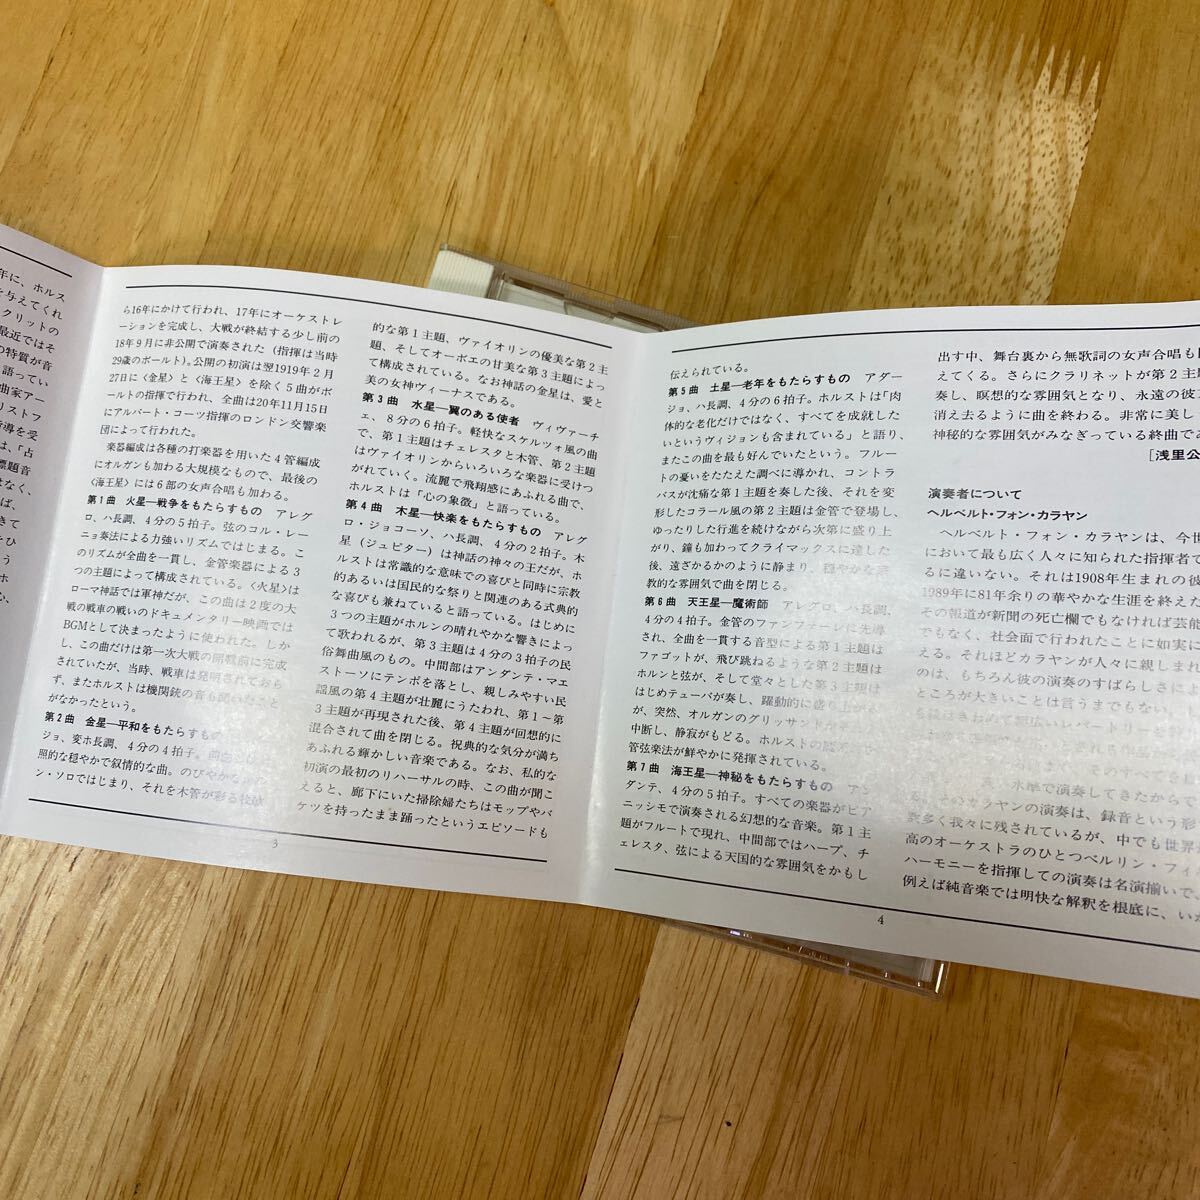 年に、ホルス
を与えてくれ
クリットの
最近ではそ
の特質が音
語ってい
曲家アー
リストフ
指導を受
は、「占
標題音
はなく、
れば、
きて
ひ
う
ホ
む、
ら16年にかけて行われ、17年にオーケストレ
ーションを完成し、大戦が終結する少し前の
18年9月に非公開で演奏された（指揮は当時
29歳のボールト）。公開の初演は翌1919年2月
27日に〈金星〉と〈海王星〉を除く5曲がボ
ールトの指揮で行われ、全曲は20年11月15日
にアルバート・コーツ指揮のロンドン交響楽
団によって行われた。
楽器編成は各種の打楽器を用いた4管編成
にオルガンも加わる大規模なもので、最後の
〈海王星〉には6部の女声合唱も加わる。
第1曲 火星―戦争をもたらすもの アレグ
ロ、ハ長調、4分の5拍子。弦のコル・レー
ニョ奏法による力強いリズムではじまる。こ
のリズムが全曲を一貫し、金管楽器による3
つの主題によって構成されている。〈火星〉は
ローマ神話では軍神だが、この曲は2度の大
戦の戦車の戦いのドキュメンタリー映画では
BGMとして決まったように使われた。しか
し、この曲だけは第一次大戦の開戦前に完成
されていたが、当時、戦車は発明されておら
ず、またホルストは機関銃の音も聞いたこと
がなかったという。
第2曲 金星―平和をもたらすもの
ジョ、変ホ長調、4分の4拍子。前曲と
照的な穏やかで叙情的な曲。のびやかな
ン・ソロではじまり、それを木管が彩る牧歌
3
的な第1主題、ヴァイオリンの優美な第2主
題、そしてオーボエの甘美な第3主題によっ
て構成されている。なお神話の金星は、愛と
美の女神ヴィーナスである。
第3曲 水星―翼のある使者 ヴィヴァーチ
ェ、8分の6拍子。軽快なスケルツォ風の曲
で、第1主題はチェレスタと木管、第2主題
はヴァイオリンからいろいろな楽器に受けつ
がれていく。流麗で飛翔感にあふれる曲で、
ホルストは「心の象徴」と語っている。
第4曲 木星―快楽をもたらすもの アレグ
ロ・ジョコーソ、ハ長調、4分の2拍子。木
星（ジュピター）は神話の神々の王だが、ホ
ルストは常識的な意味での喜びと同時に宗教
的あるいは国民的な祭りと関連のある式典的
な喜びも兼ねていると語っている。はじめに
3つの主題がホルンの晴れやかな響きによっ
て歌われるが、第3主題は4分の3拍子の民
俗舞曲風のもの。中間部はアンダンテ・マエ
ストーソにテンポを落とし、親しみやすい民
謡風の第4主題が壮麗にうたわれ、第1～第
3主題が再現された後、第4主題が回想的に
混合されて曲を閉じる。祝典的な気分が満ち
あふれる輝かしい音楽である。なお、私的な
初演の最初のリハーサルの時、この曲が聞こ
えると、廊下にいた掃除婦たちはモップやバ
ケツを持ったまま踊ったというエピソードも
伝えられている。
第5曲 土星―老年をもたらすもの アダー
ジョ、ハ長調、4分の4拍子。ホルストは「肉
体的な老化だけではなく、すべてを成就した
いというヴィジョンも含まれている」と語り、
またこの曲を最も好んでいたという。フルー
トの憂いをたたえた調べに導かれ、コントラ
バスが沈痛な第1主題を奏した後、それを変
形したコラール風の第2主題は金管で登場し、
ゆったりした行進を続けながら次第に盛り上
がり、鐘も加わってクライマックスに達した
後、遠ざかるかのように静まり、穏やかな宗
教的な雰囲気で曲を閉じる。
第6曲 天王星―魔術師 アレグロ、ハ長調、
4分の4拍子。金管のファンファーレに先導
され、全曲を一貫する音型による第1主題は
ファゴットが、飛び跳ねるような第2主題は
ホルンと弦が、そして堂々とした第3主題は
はじめテューバが奏し、躍動的に盛り上がる
が、突然、オルガンのグリッサンドで
中断し、静寂がもどる。ホルストの
管弦楽法が鮮やかに発揮されている。
第7曲 海王星―神秘をもたらすもの アン
ダンテ、4分の5拍子。すべての楽器がピア
ニッシモで演奏される幻想的な音楽。第1主
題がフルートで現れ、中間部ではハープ、チ
ェレスタ、弦による天国的な雰囲気をかもし
4
出す中、舞台裏から無歌詞の女声合唱も
えてくる。さらにクラリネットが第2主題
奏し、瞑想的な雰囲気となり、永遠の彼
消え去るように曲を終わる。非常に美し
神秘的な雰囲気がみなぎっている終曲であ
［浅里公
演奏者について
ヘルベルト・フォン・カラヤン
ヘルベルト・フォン・カラヤンは、今世
において最も広く人々に知られた指揮者で
るに違いない。それは1908年生まれの彼
1989年に81年余りの華やかな生涯を終えた
その報道が新聞の死亡欄でもなければ芸能
でもなく、社会面で行われたことに如実に
える。それほどカラヤンが人々に親しまれ
のは、もちろん彼の演奏のすばらしさによ
ところが大きいことは言うまでもない。
きわめて幅広いレパートリーを
水準で演奏してきたからで
カラヤンの演奏は、録音という形
数多く我々に残されているが、中でも世界最
高のオーケストラのひとつベルリン・フィ
ハーモニーを指揮しての演奏は名演揃いで、
例えば純音楽では明快な解釈を根底に、いか